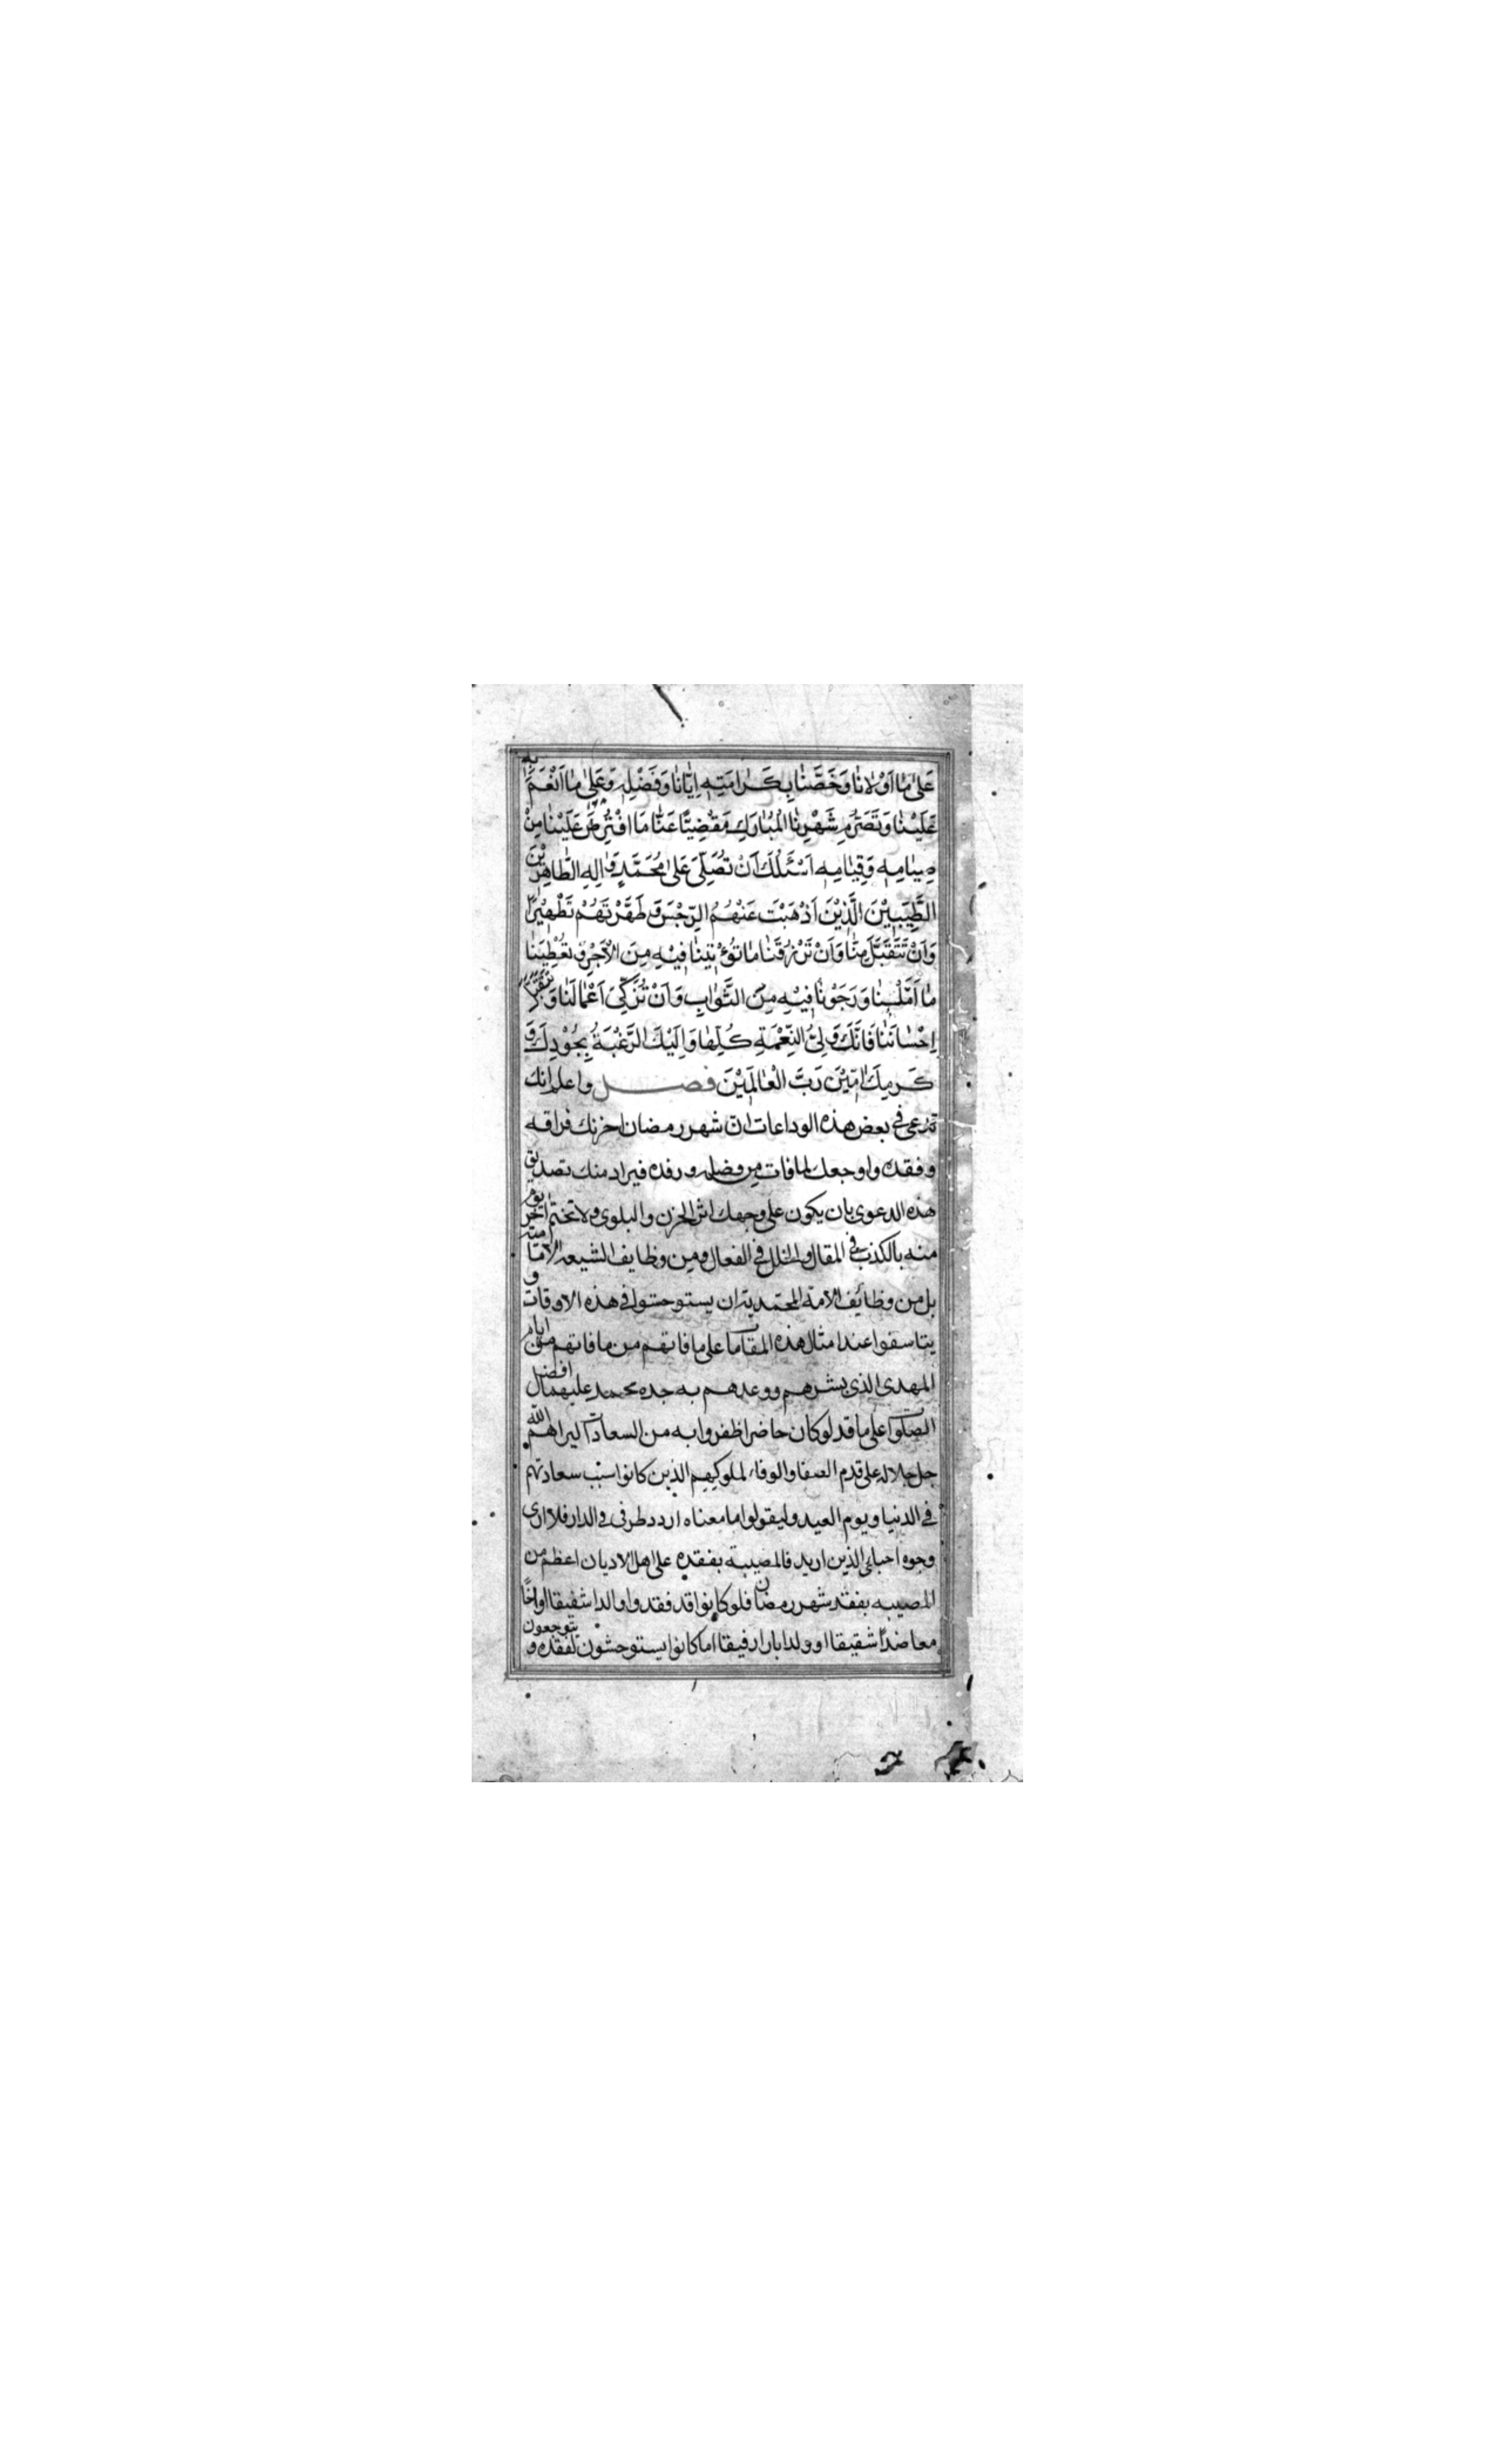 عَلىٰ مٰا اَوْلانٰا وَخَصَّنٰا بِكَرٰامَتِهِ اِيّٰانٰا وَفَضْلِهِ وَعَلىٰ مٰا اَنْعَمَ بِهِ
عَلَيْنٰا وَتَصَرُّمِ شَهْرِنَا الْمُبٰارَكِ مَقْضِيًّا عَنّٰا مَا افْتُرِضَ عَلَيْنٰا مِنْ
صِيٰامِهِ وَقِيٰامِهِ اَسْئَلُكَ اَنْ تُصَلِّىَ عَلىٰ مُحَمَّدٍ وَاٰلِهِ الطّٰاهِرِيْنَ
الطَّيِّبِيْنَ الَّذِيْنَ اَذْهَبْتَ عَنْهُمُ الرِّجْسَ وَطَهَّرْتَهُمْ تَطْهِيْرًا
وَاَنْ تَتَقَبَّلَ مِنّٰا وَاَنْ تَرْزُقَنٰا مٰا تُؤْتِيْنٰا فِيْهِ مِنَ الْاَجْرِ وَتُعْطِيَنٰا
مٰا اَمَّلْنٰا وَرَجَوْنٰا فِيْهِ مِنَ الثَّوٰابِ وَاَنْ تُزَكِّىَ اَعْمٰالَنٰا وَتَتَقَبَّلَ
اِحْسٰانَنٰا فَاِنَّكَ وَلِىُّ النِّعْمَةِ كُلِّهٰا وَاِلَيْكَ الرَّغْبَةُ بِجُوْدِكَ وَ
كَرَمِكَ اٰمِيْنَ رَبَّ الْعٰالَمِيْنَ فصل واعلم انك
تدعى فى بعض هذه الوداعات ان شهر رمضان احزنك فراقه
وفقده واوجعك لما فات من فضله ورفده فيراد منك تصديق
هذه الدعوى بان يكون على وجهك اثر الحزن والبلوى ولا تختم اخر يوم
منه بالكذب فى المقال والخلل فى الفعال ومن وظايف الشيعه الاماميه
بل من وظائف الامة المحمدية ان يستوحشوا فى هذه الاوقات و
يتاسفوا عند امثال هذه المقامات على ما فاتهم من ايام
المهدى الذى بشرهم ووعدهم به جده محمد عليهما افضل
الصلوات على ما قد لو كان حاضرا ظفروا به من السعادات ليراهم الله
جل جلاله على قدم الصفا والوفاء لملوكهم الذين كانوا سبب سعادتهم
فى الدنيا ويوم العيد وليقولوا ما معناه اردد طرفى فى الدار فلا ارى
وجوه احبائى الذين اريد فالمصيبة بفقده على اهل الاديان اعظم من
المصيبه بفقد شهر رمضان فلو كانوا قد فقدوا والدا شفيقا او اخًا
معاضدًا شقيقا او ولدا بارا رفيقا اما كانوا يستوحشون لفقده و يتوجعون